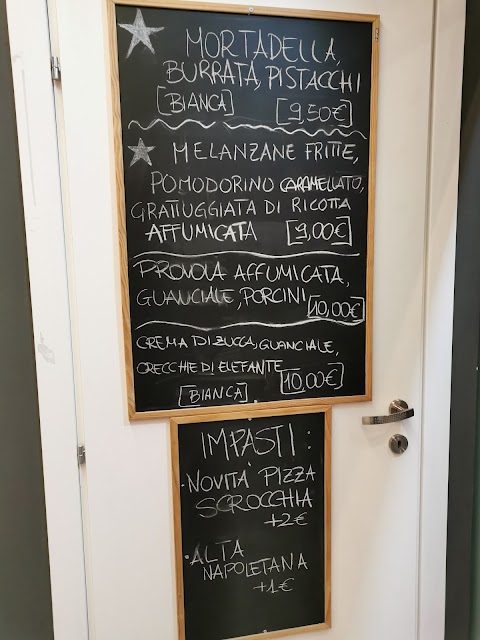 MORTADELLA,
BURRATA, PISTACCHI
[BIANCA] [9,50€]
MELANZANE FRITTE,
POMODORINO CARAMELLATO,
GRATTUGGIATA DI RICOTTA
AFFUMICATA [9,00€]
PROVOLA AFFUMICATA,
GUANCIALE, PORCINI [10,00€]
CREMA DI ZUCCA, GUANCIALE,
ORECCHIE DI ELEFANTE
[BIANCA] [10,00€]
IMPASTI:
·NOVITÀ PIZZA
SCROCCHIA
+2€
·ALTA
NAPOLETANA
+1€